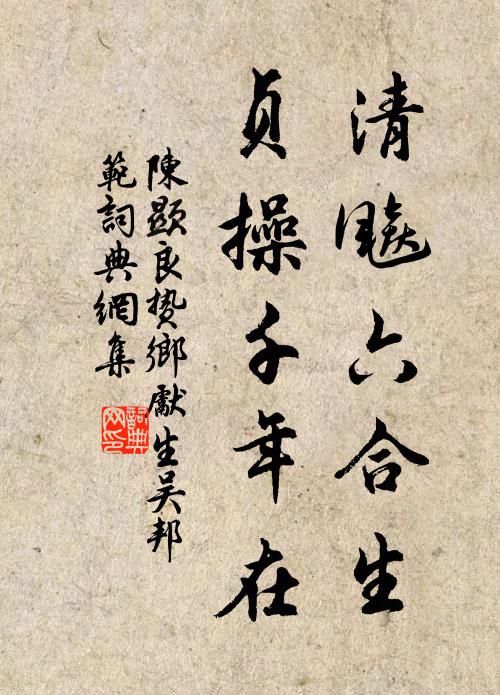 清飈六合生
貞操千年在
陳顯良贽鄉獻生吴邦
範詞典網集
詞典
网印